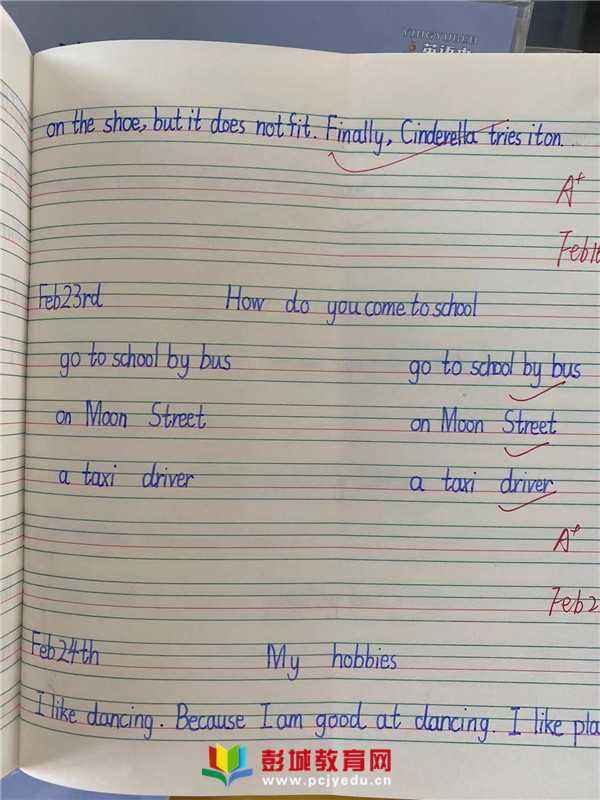 YINGYUBEN
英语本
on the shoe, but it does not fit. Finally, Cinderella tries it on.
A+
Feb 1
Feb 23rd How do you come to school
go to school by bus go to school by bus
on Moon Street on Moon Street
a taxi driver a taxi driver
A+
Feb 2
Feb 24th My hobbies
I like dancing. Because I am good at dancing. I like pla
彭城教育网
www.pcjyedu.cn